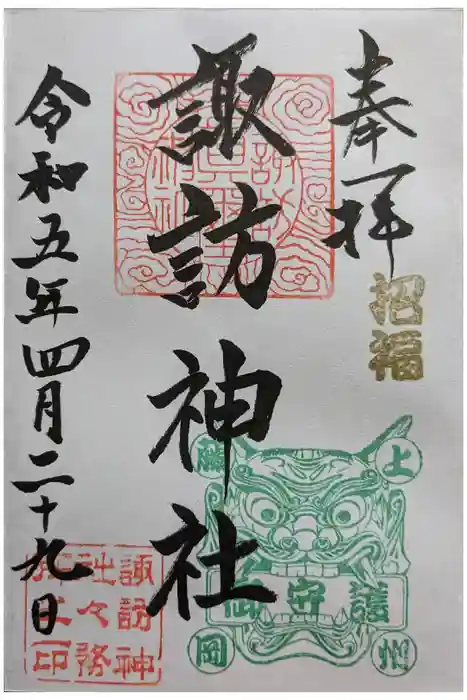 奉拝
招福
諏訪神社
令和五年四月二十九日
上州
藤岡
御守護
諏訪神
社々務
所之印